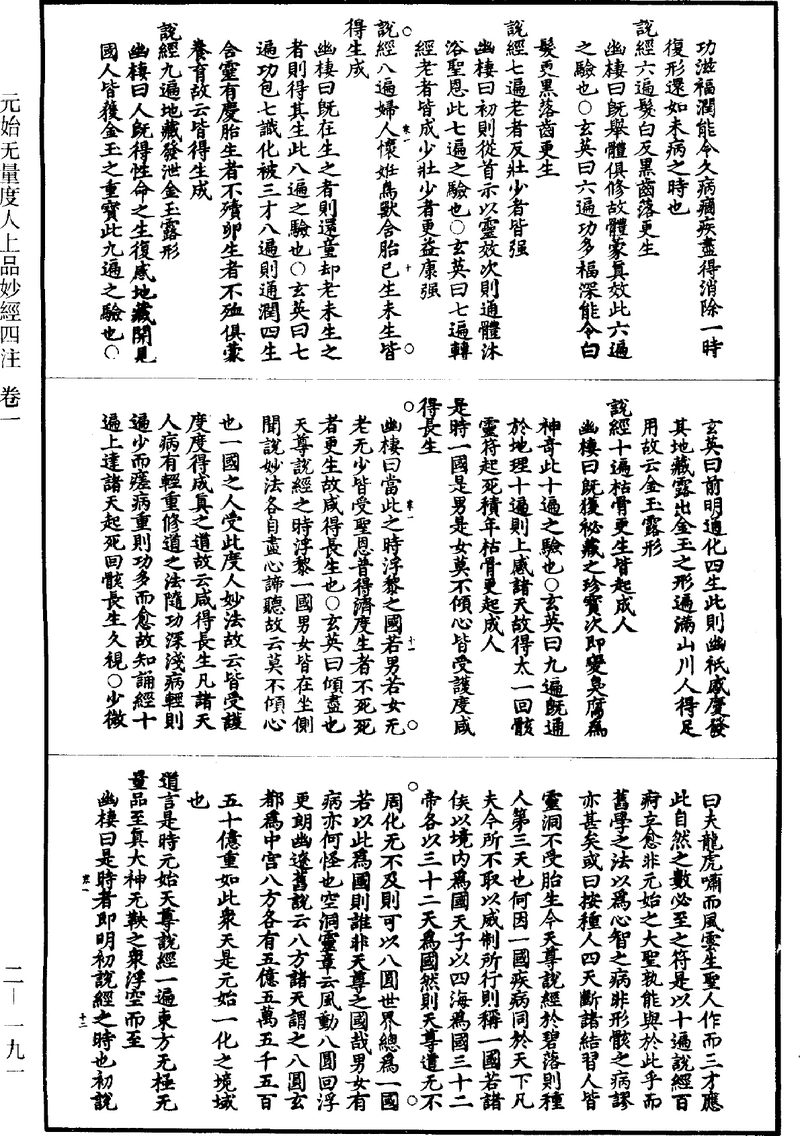 元始无量度人上品妙經四注 卷一
二—一九一
功滋福潤能令久病痼疾盡得消除一時
復形還如未病之時也
說經六遍髮白反黑齒落更生
幽棲曰旣舉體俱修故體蒙真效此六遍
之驗也○玄英曰六遍功多福深能令白
髮更黑落齒更生
說經七遍老者反壯少者皆强
幽棲曰初則從首示以靈效次則通體沐
浴聖恩此七遍之驗也○玄英曰七遍轉
經老者皆成少壯少者更益康强
說經八遍婦人懷妊鳥獸含胎已生未生皆
得生成
幽棲曰旣在生之者則還童却老未生之
者則得其生此八遍之驗也○玄英曰七
遍功包七識化被三才八遍則通潤四生
含靈有慶胎生者不殰卵生者不殈俱蒙
養育故云皆得生成
說經九遍地藏發泄金玉露形
幽棲曰人旣得性命之生復感地藏開見
國人皆獲金玉之重寶此九遍之驗也○
玄英曰前明通化四生此則幽祇感慶發
其地藏露出金玉之形遍滿山川人得足
用故云金玉露形
說經十遍枯骨更生皆起成人
幽棲曰旣復祕藏之珍寶次即變臭腐爲
神奇此十遍之驗也○玄英曰九遍旣通
於地理十遍則上感諸天故得太一回骸
靈符起死積年枯骨更起成人
是時一國是男是女莫不傾心皆受護度咸
得長生
幽棲曰當此之時浮黎之國若男若女无
老无少皆受聖恩普得濟度生者不死死
者更生故咸得長生也○玄英曰傾盡也
天尊說經之時浮黎一國男女皆在坐側
聞說妙法各自盡心諦聽故云莫不傾心
也一國之人受此度人妙法故云皆受護
度度得成真之道故云咸得長生凡諸天
人病有輕重修道之法隨功深淺病輕則
遍少而瘥病重則功多而愈故知誦經十
遍上達諸天起死回骸長生久視○少微
曰夫龍虎嘯而風雲生聖人作而三才應
此自然之數必至之符是以十遍說經百
痾立愈非元始之大聖孰能與於此乎而
舊學之法以爲心智之病非形骸之病謬
亦甚矣或曰按種人四天斷諸結習人皆
靈洞不受胎生今天尊說經於碧落則種
人第三天也何因一國疾病同於天下凡
夫今所不取以威制所行則稱一國若諸
侯以境內爲國天子以四海爲國三十二
帝各以三十二天爲國然則天尊道无不
周化无不及則可以八圓世界總爲一國
若以此爲國則誰非天尊之國哉男女有
病亦何怪也空洞靈章云風動八圓回浮
更朗幽邃舊說云八方諸天謂之八圓玄
都爲中宮八方各有五億五萬五千五百
五十億重如此衆天是元始一化之境域
也
道言是時元始天尊說經一遍東方无極无
量品至真大神无鞅之衆浮空而至
幽棲曰是時者即明初說經之時也初說